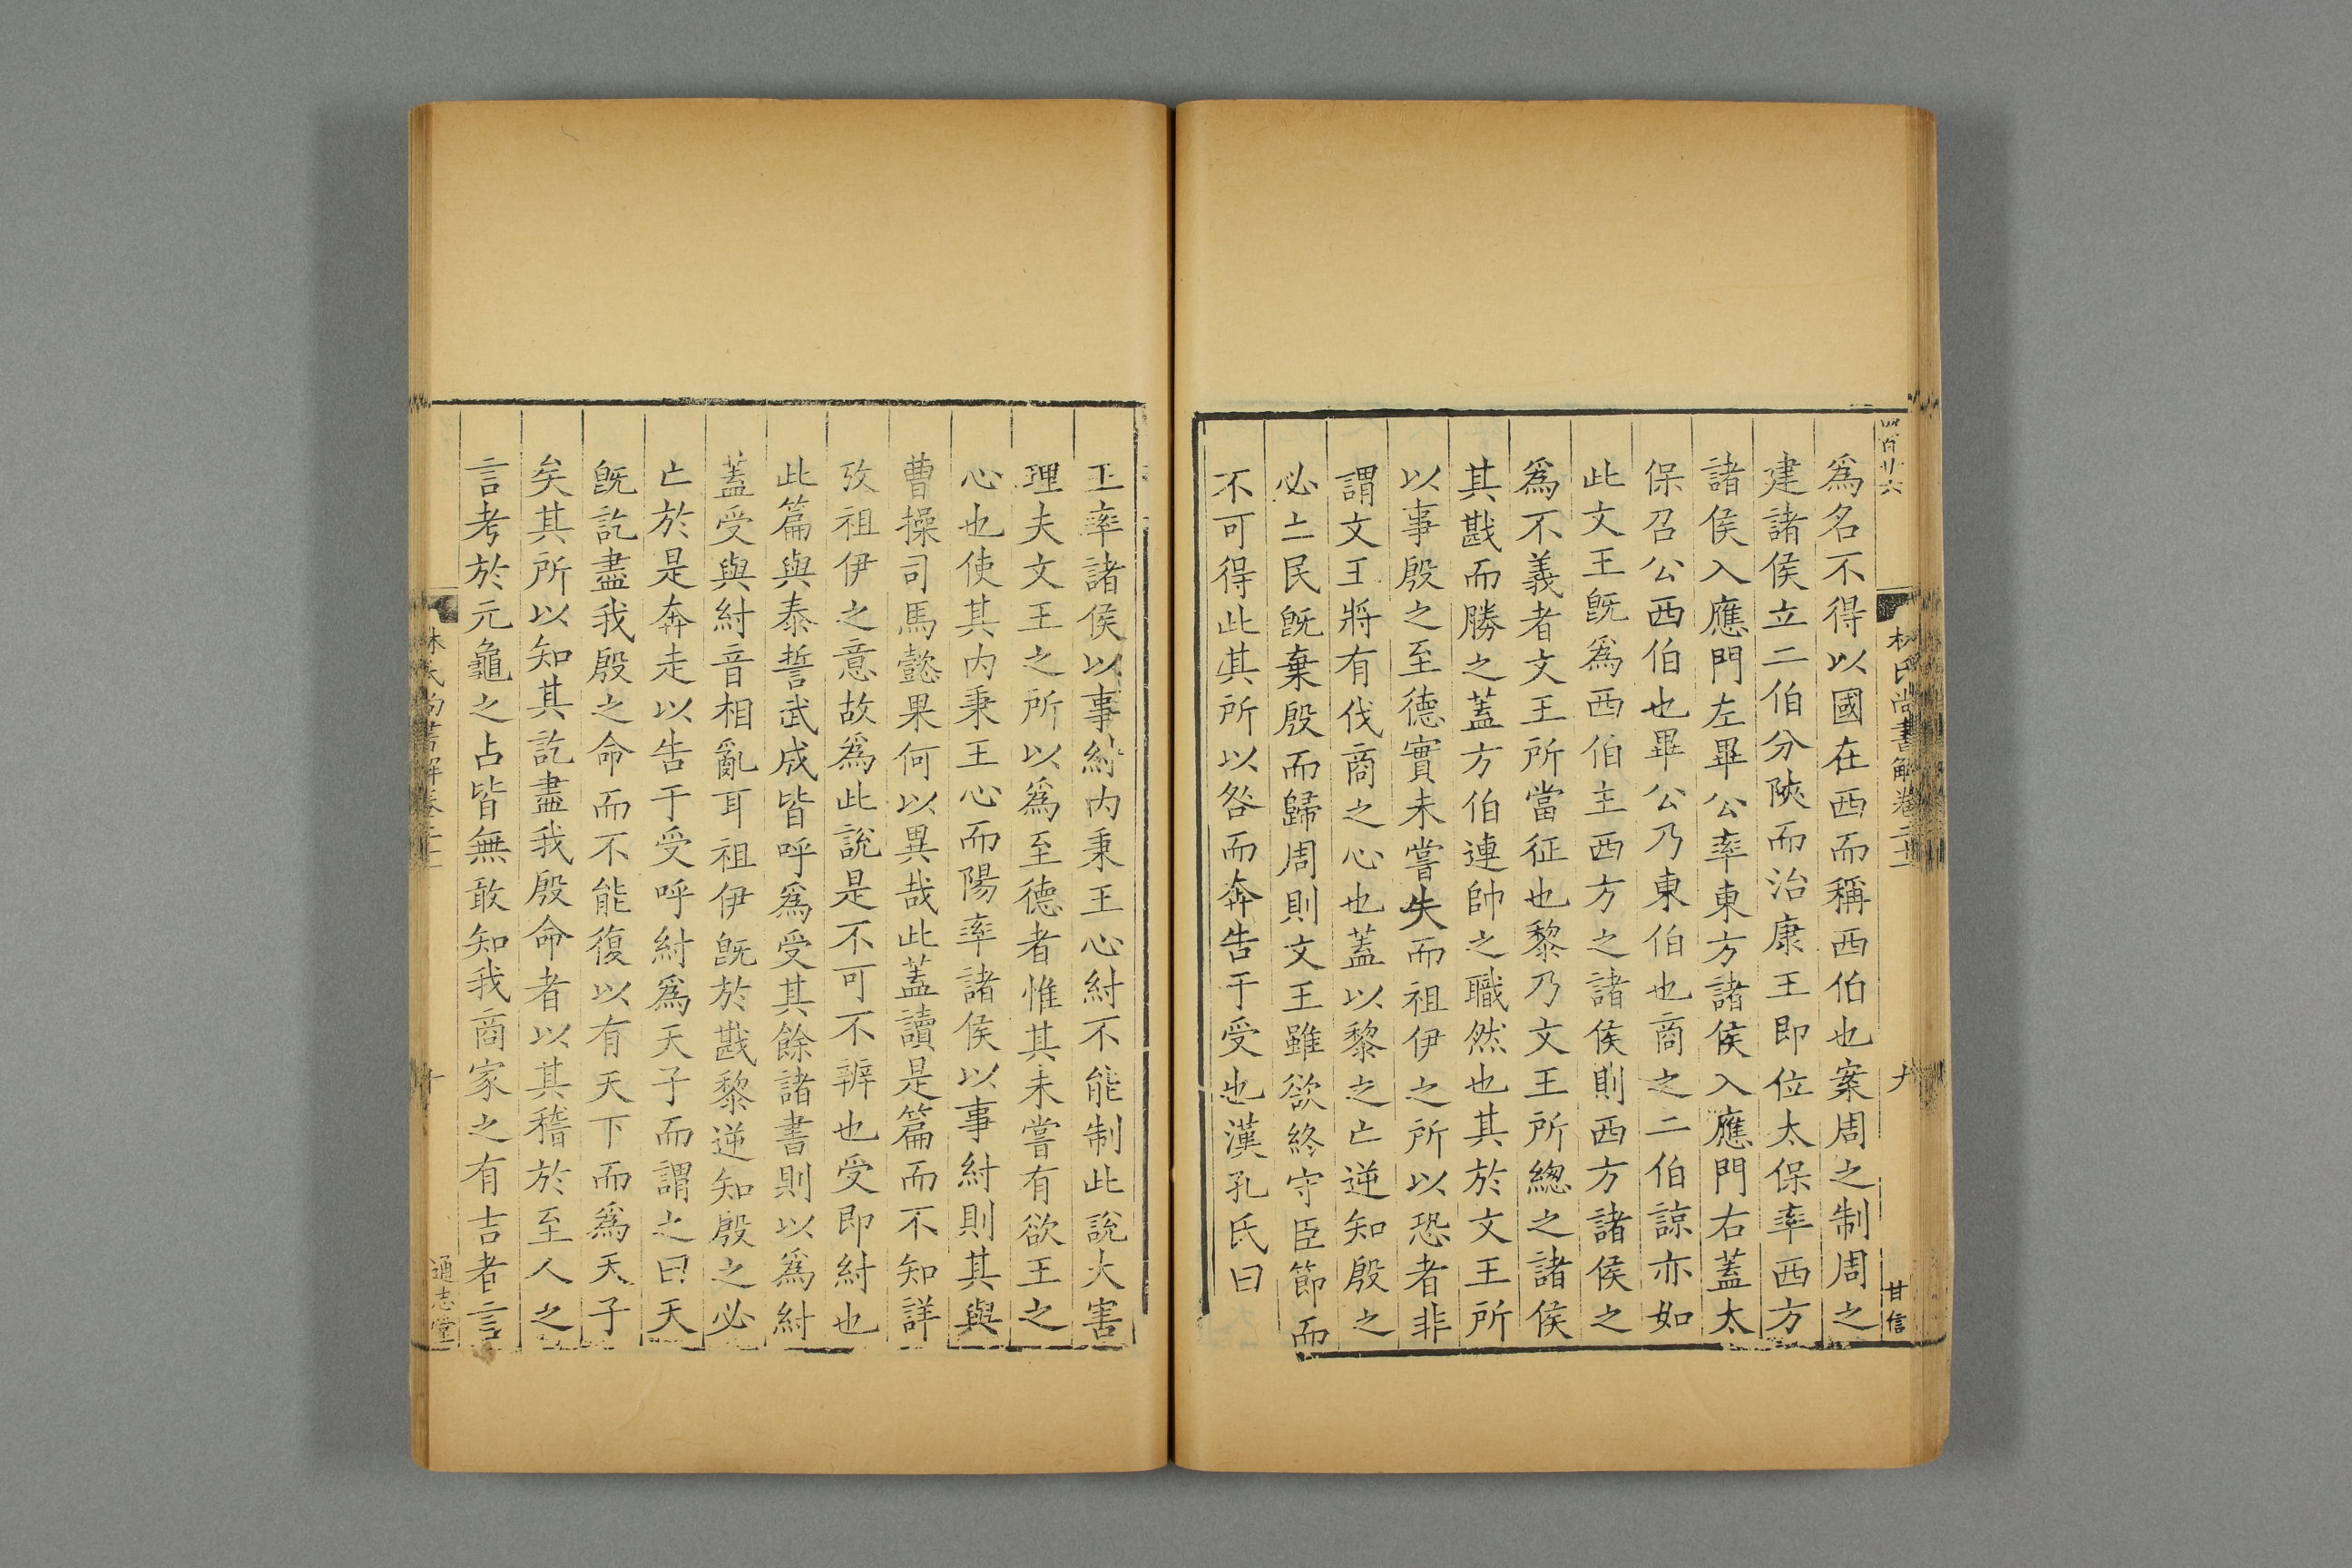 四百廿六
林氏尚書解卷二十一
九
甘信
爲名不得以國在西而稱西伯也案周之制周之
建諸侯立二伯分陜而治康王即位太保率西方
諸侯入應門左畢公率東方諸侯入應門右蓋太
保召公西伯也畢公乃東伯也商之二伯諒亦如
此文王旣爲西伯主西方之諸侯則西方諸侯之
爲不義者文王所當征也黎乃文王所緫之諸侯
其戡而勝之蓋方伯連帥之職然也其於文王所
以事殷之至德實未嘗失而祖伊之所以恐者非
謂文王將有伐商之心也蓋以黎之亡逆知殷之
必亡民旣棄殷而歸周則文王雖欲終守臣節而
不可得此其所以咎而奔告于受也漢孔氏曰
王率諸侯以事紂内秉王心紂不能制此說大害
理夫文王之所以爲至德者惟其未嘗有欲王之
心也使其内秉王心而陽率諸侯以事紂則其與
曹操司馬懿果何以異哉此蓋讀是篇而不知詳
攷祖伊之意故爲此說是不可不辨也受即紂也
此篇與泰誓武成皆呼爲受其餘諸書則以爲紂
蓋受與紂音相亂耳祖伊旣於戡黎逆知殷之必
亡於是奔走以告于受呼紂爲天子而謂之曰天
旣訖盡我殷之命而不能復以有天下而爲天子
矣其所以知其訖盡我殷命者以其稽於至人之
言考於元龜之占皆無敢知我商家之有吉者言
林氏尚書解卷二十一
十
通志堂